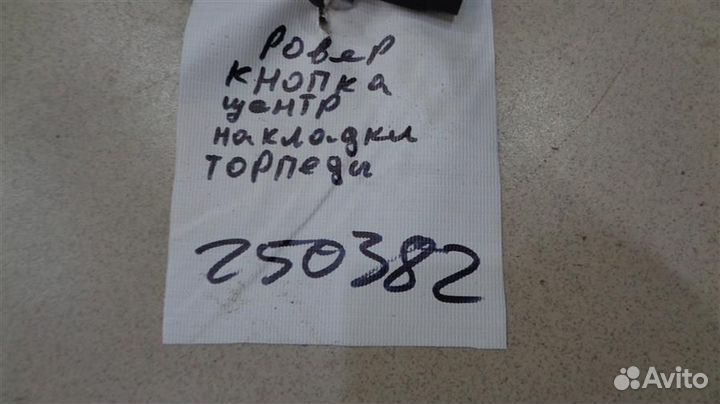 РОВЕР
КНОПКА
центр
накладки
ТОРПеды
250382
Avito